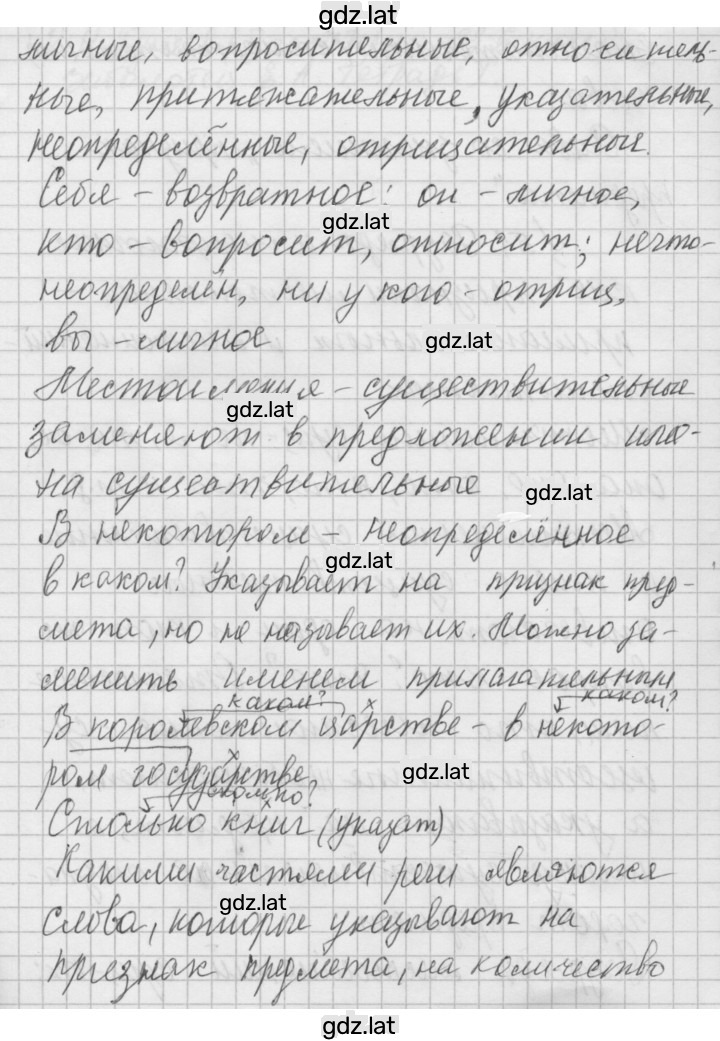 gdz.lat
личные, вопросительные, относитель-
ные, притяжательные, указательные,
неопределённые, отрицательные.
Себя – возвратное: он – личное,
gdz.lat
кто – вопросит, относит; нечто-
неопределён, ни у кого – отриц,
вы – личное
gdz.lat
Местоимения – существительные
gdz.lat
заменяют в предложении име-
на существительные
gdz.lat
В некотором – неопределённое
gdz.lat
в каком? Указывает на признак пред-
мета, но не называет их. Можно за-
менить именем прилагательным
каком? каком?
В королевском царстве – в некото-
ром государстве
gdz.lat
сколько?
Столько книг (указат)
Какими частями речи являются
gdz.lat
слова, которые указывают на
признак предмета, на количество
gdz.lat